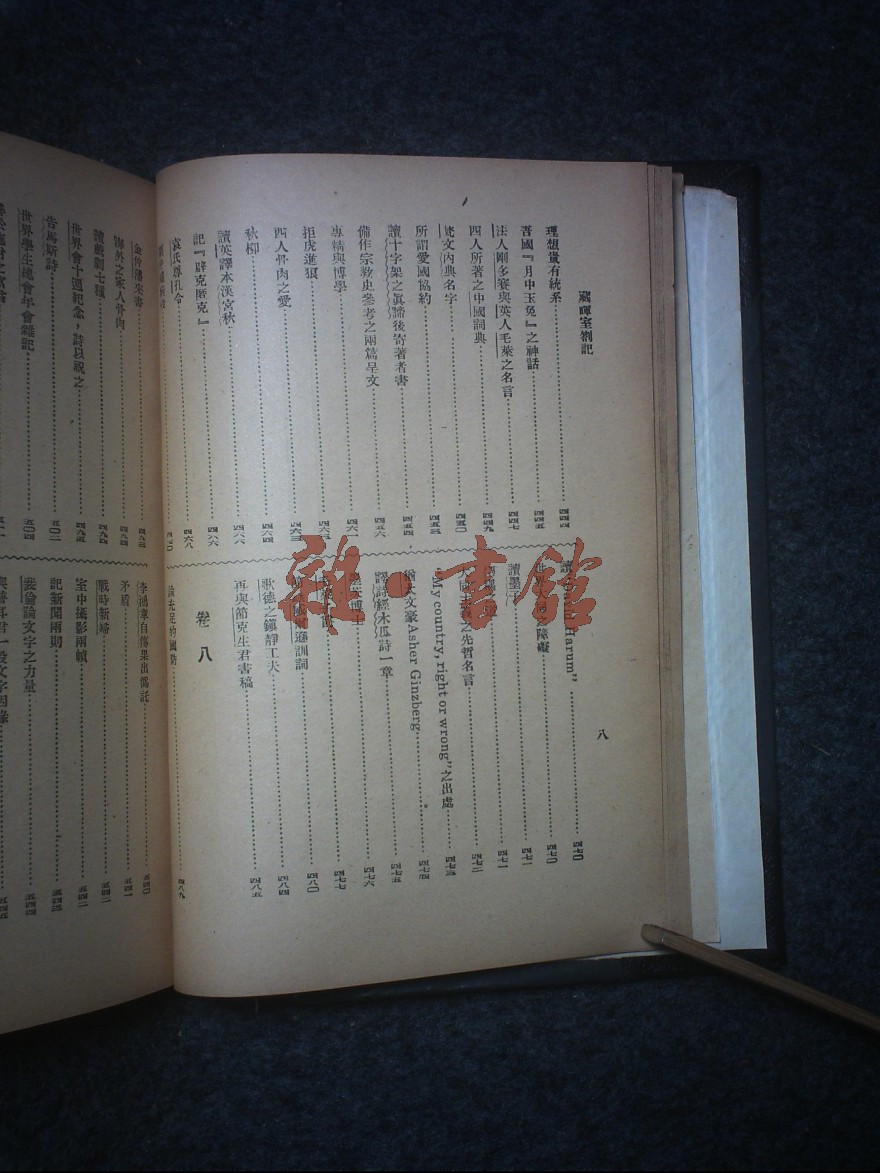 藏暉室劄記
八
理想貴有統系……四四四
吾國『月中玉兔』之神話……四四五
法人剛多賽與英人毛萊之名言……四四七
西人所著之中國詞典……四四九
梵文內典名字……四五〇
所謂愛國協約……四五三
讀十字架之眞諦後寄著者書……四五四
備作宗教史參考之兩篇呈文……四五六
專精與博學……四六一
拒虎進狼……四六三
西人骨肉之愛……四六三
秋柳……四六四
讀英譯本漢宮秋……四六六
記『辟克匿克』……四六六
袁氏尊孔令……四六八
四七〇
Harum”……四七〇
世界大同之障礙……四七〇
讀墨子……四七一
四七一
之先哲名言……四七二
“My country, right or wrong”之出處……四七三
猶太文豪Asher Ginzberg……四七四
譯詩經木瓜詩一章……四七五
博士……四七六
四七七
遜訓詞……四八〇
歌德之鎮靜工夫……四八四
再與節克生君書稿……四八五
卷八
論充足的國防……四八九
金仲藩來書……四九三
海外之家人骨肉……四九四
讀戲劇七種……四九五
世界會十週紀念，詩以祝之
告馬斯詩……五〇二
世界學生總會年會雜記……五〇四
李鴻章自傳果出僞託……五四〇
矛盾……五四一
戰時新婦……五四二
室中攝影兩幀……五四二
記新聞兩則……五四三
裴倫論文字之力量……五四四
君一段文字因緣……五四五
雜·書館